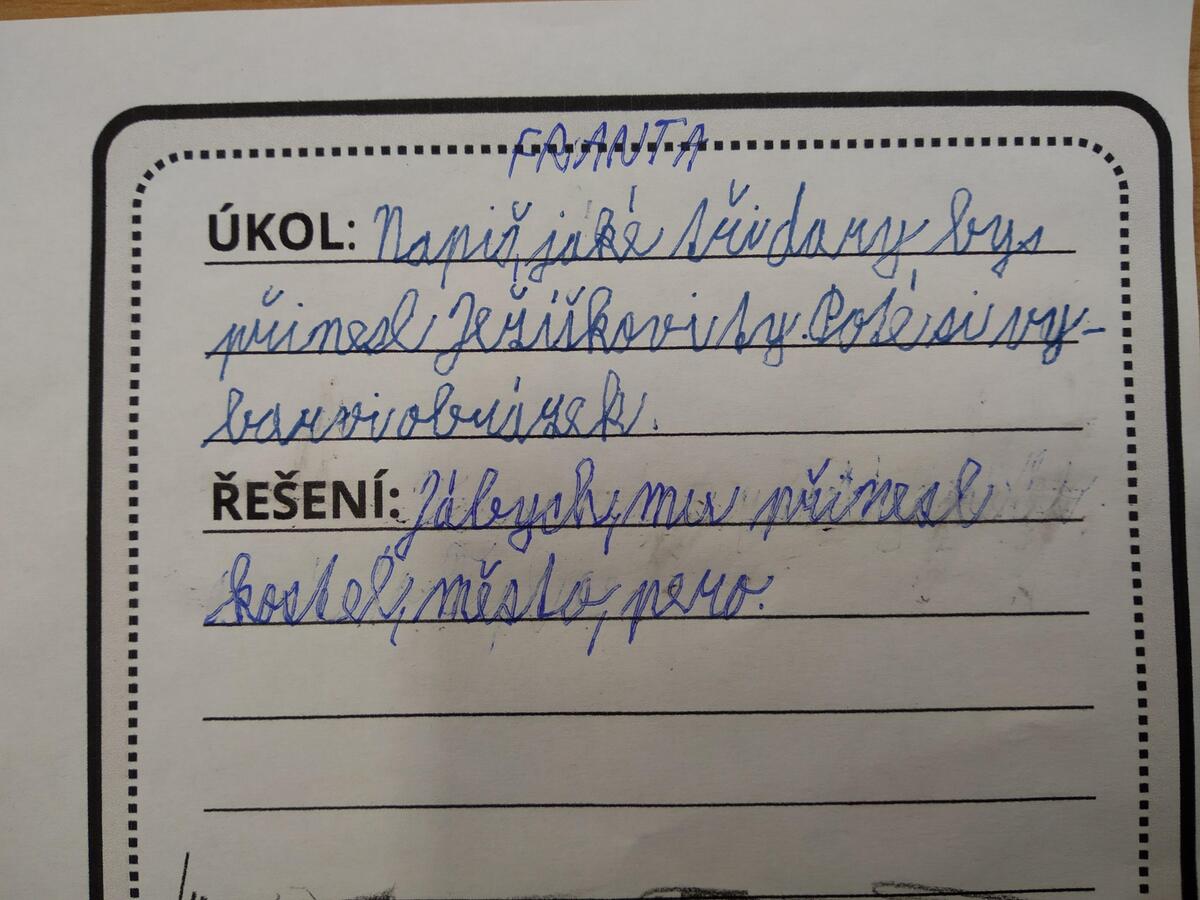 FRANTA
ÚKOL: Napiš, jaké tři dary bys
přinesl Ježíškovi ty. Poté si vy-
barvi obrázek.
ŘEŠENÍ: Já bych, mu přinesl
kostel, město, pero.